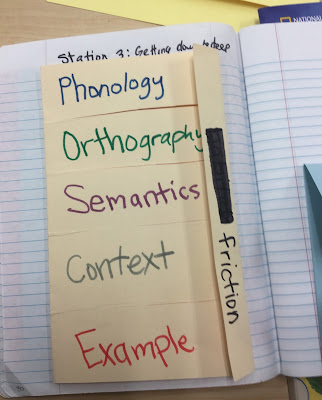 NATIONAL
Station 3: Getting down to deep
Phonology
Orthography
Semantics
Context
Example
friction